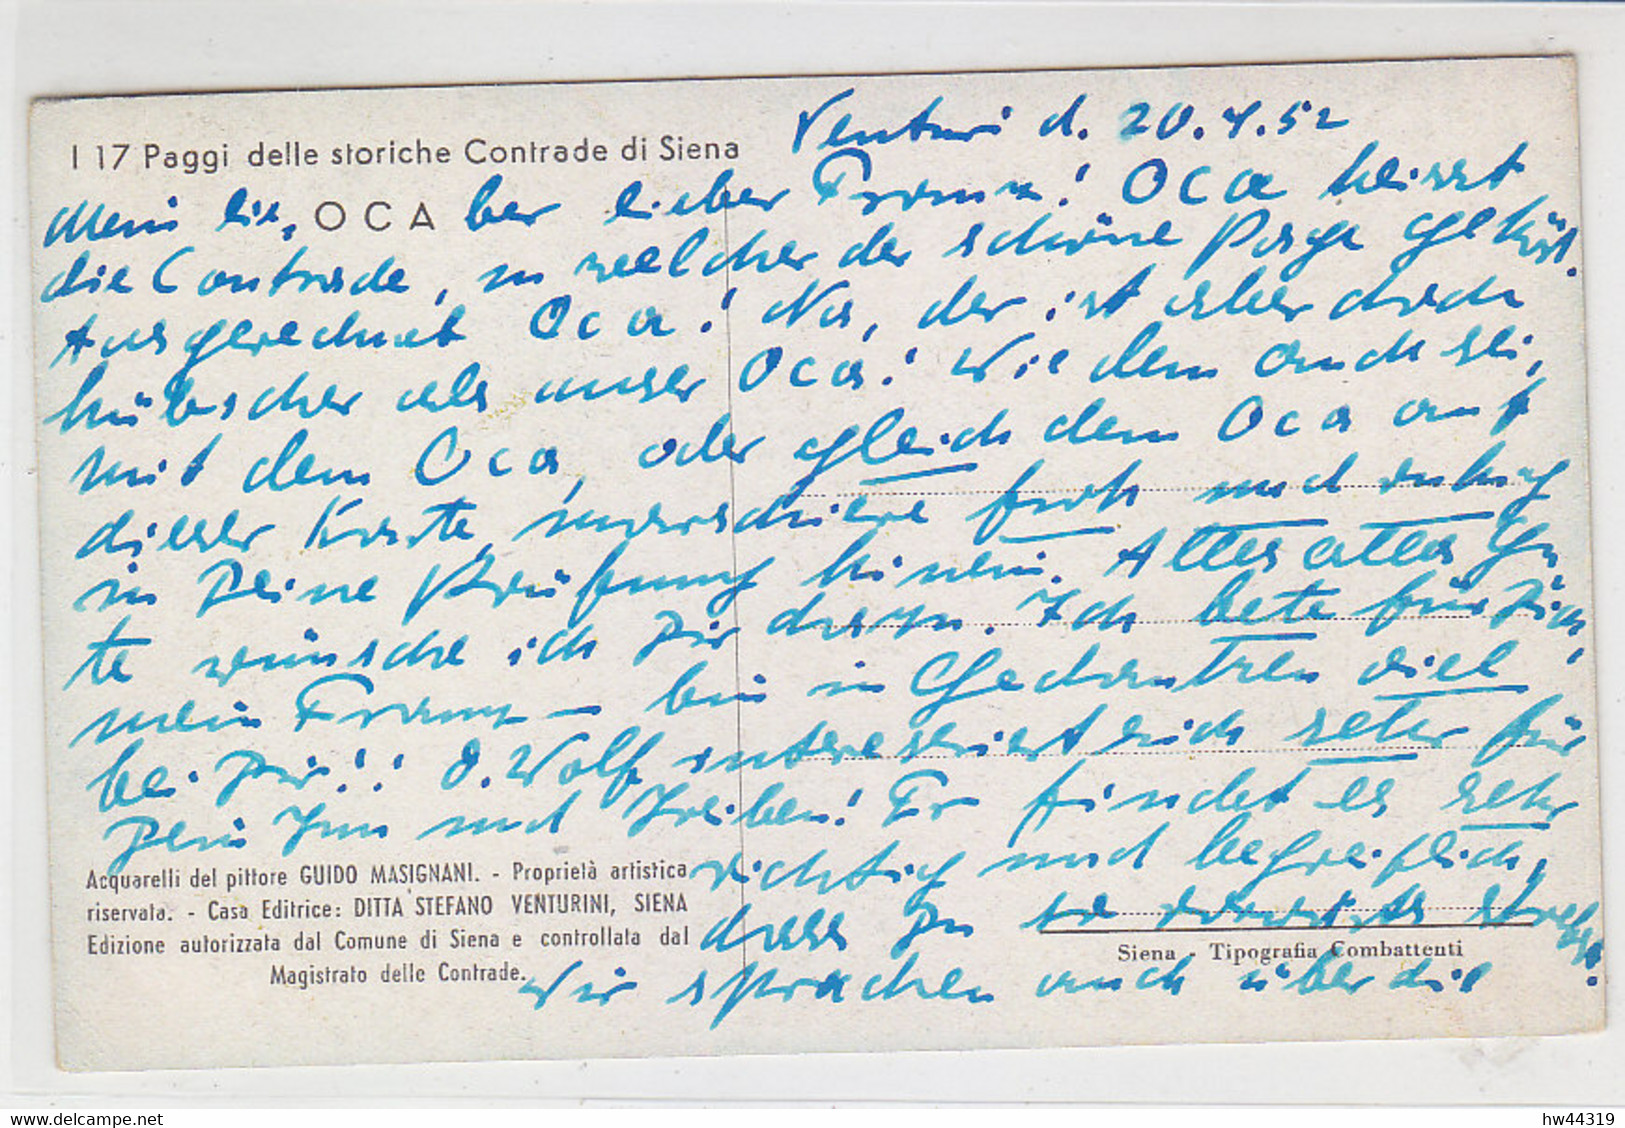 I 17 Paggi delle storiche Contrade di Siena
Venturi d. 20.4.52
Mein lie, OCA ber lieber Franz! Oca heisst
die Contrade, in welcher der schöne Page gehört.
Ausgerechnet Oca! Na, der ist aber doch
hübscher als unser Oca! Wie dem auch sei,
mit dem Oca, oder gleich dem Oca auf
dieser Karte, marschiere froh und ruhig
in Deine Prüfung hinein. Alles alles Gu
te wünsche ich Dir dazu. Ich bete für Dich,
mein Franz – bin in Gedanken viel
bei Dir!! D. Wolf interessiert sich sehr für
Dein Tun und Treiben! Er findet es sehr
richtig und begreiflich,
dass Du so vorwärts strebst.
Wir sprachen auch über die
Acquarelli del pittore GUIDO MASIGNANI. - Proprietà artistica
riservata. - Casa Editrice: DITTA STEFANO VENTURINI, SIENA
Edizione autorizzata dal Comune di Siena e controllata dal
Magistrato delle Contrade.
Siena - Tipografia Combattenti
delcampe.net
hw44319